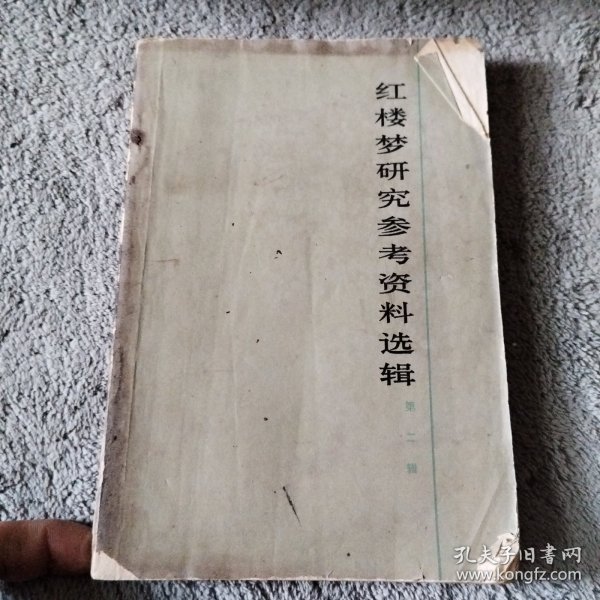 红楼梦研究参考资料选辑
第二辑
孔夫子旧书网
www.kongfz.com